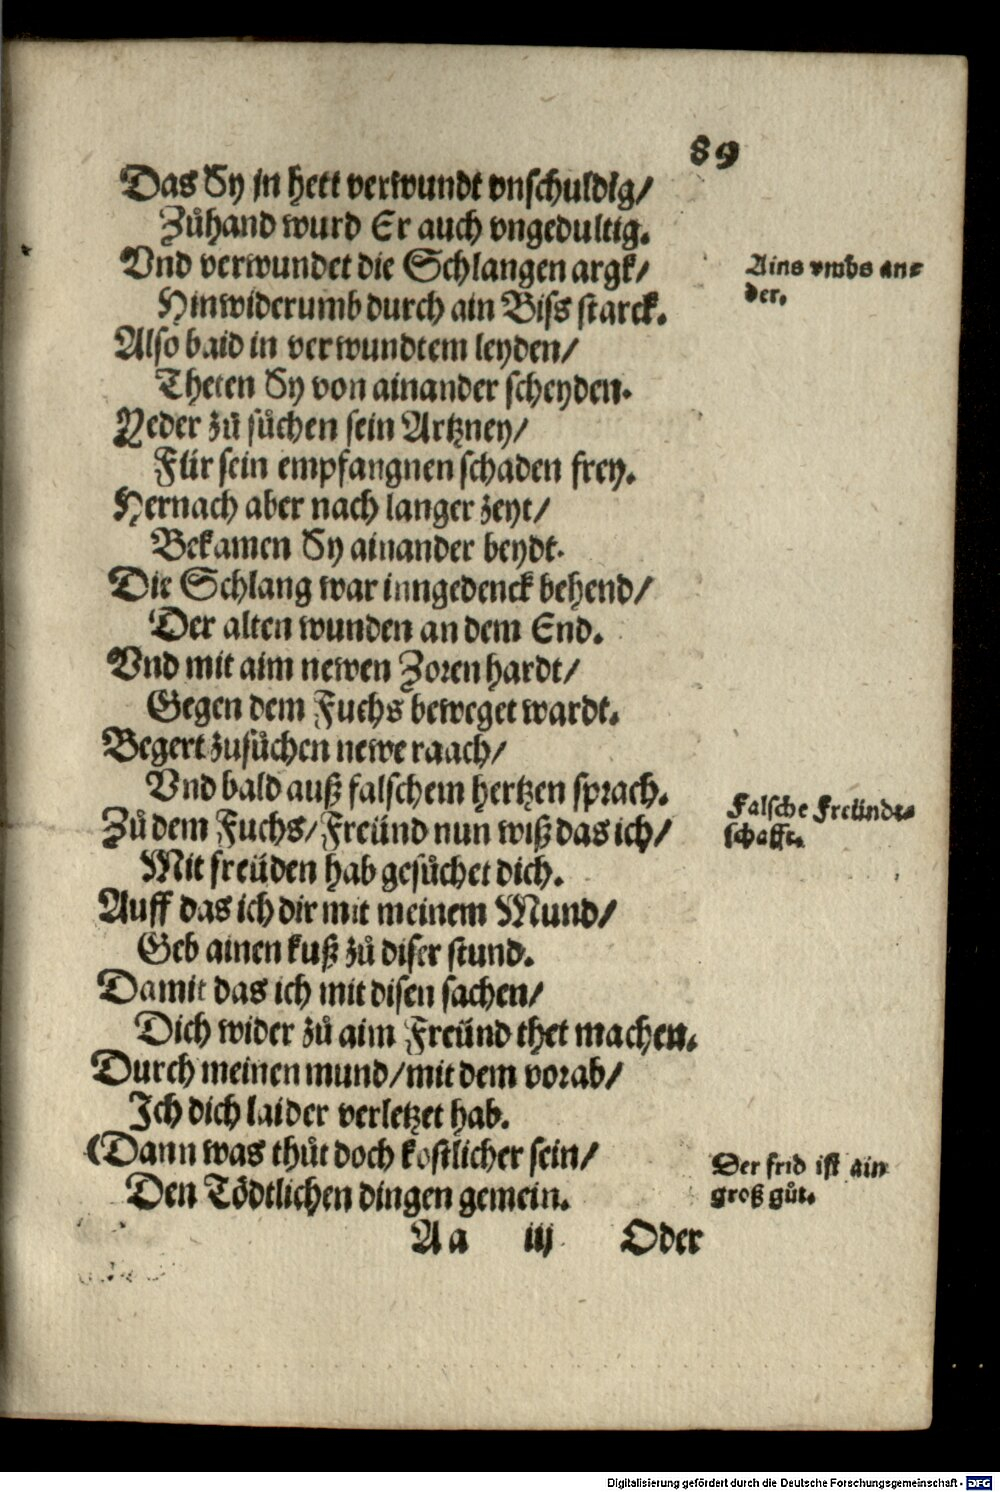 89
Das Sy jn hett verwundt vnschuldig/
Zůhand wurd Er auch vngedultig.
Vnd verwundet die Schlangen argk/
Ains vmbs an-
der.
Hinwiderumb durch ain Biss starck.
Also bald in verwundtem leyden/
Theten Sy von ainander scheyden.
Yeder zů sůchen sein Artzney/
Für sein empfangnen schaden frey.
Hernach aber nach langer zeyt/
Bekamen Sy ainander beydt.
Die Schlang war inngedenck behend/
Der alten wunden an dem End.
Vnd mit aim newen Zoren hardt/
Gegen dem Fuchs beweget wardt.
Begert zusůchen newe raach/
Vnd bald auß falschem hertzen sprach.
Falsche Freündt-
schafft.
Zů dem Fuchs/ Freünd nun wiß das ich/
Mit freüden hab gesůchet dich.
Auff das ich dir mit meinem Mund/
Geb ainen kuß zů diser stund.
Damit das ich mit disen sachen/
Dich wider zů aim Freünd thet machen.
Durch meinen mund/ mit dem vorab/
Ich dich laider verletzet hab.
(Dann was thůt doch kostlicher sein/
Der frid ist ain
groß gůt.
Den Tödtlichen dingen gemein.
Aa iij Oder
Digitalisierung gefördert durch die Deutsche Forschungsgemeinschaft - DFG